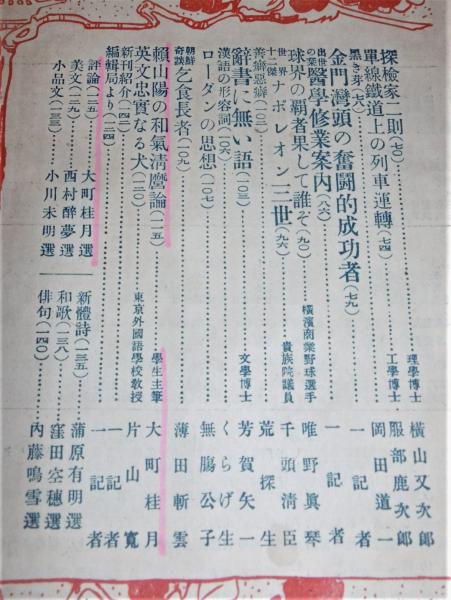 探檢家二則(七〇)……理學博士 横山又次郎
單線鐵道上の列車運轉(七四)……工學博士 服部鹿次郎
黑き芽(七六)……岡田道一
金門灣頭の奮鬪的成功者(七九)……一記者
出世の栞 醫學修業案内(八六)……一記者
球界の覇者果して誰ぞ(九〇)……横濱商業野球選手 唯野眞琴
世界十二傑 ナポレオン三世(九六)……貴族院議員 千頭清臣
善癖惡癖(一〇二)……荒探生
辭書に無い語(一〇三)……文學博士 芳賀矢一
漢語の形容詞(一〇六)……くらげ生
ローダンの思想(一〇七)……無腸公子
朝鮮奇談 乞食長者(一〇九)……薄田斬雲
賴山陽の和氣清麿論(一一五)……學生主筆 大町桂月
英文忠實なる犬(一二〇)……東京外國語學校教授 片山寬
新刊紹介(一二四)……一記者
編輯局より(一四二)……一記者
評論(一二五)……大町桂月選
美文(一二九)……西村醉夢選
小品文(一三三)……小川未明選
新體詩(一三五)……蒲原有明選
和歌(一三八)……窪田空穗選
俳句(一四〇)……内藤鳴雪選